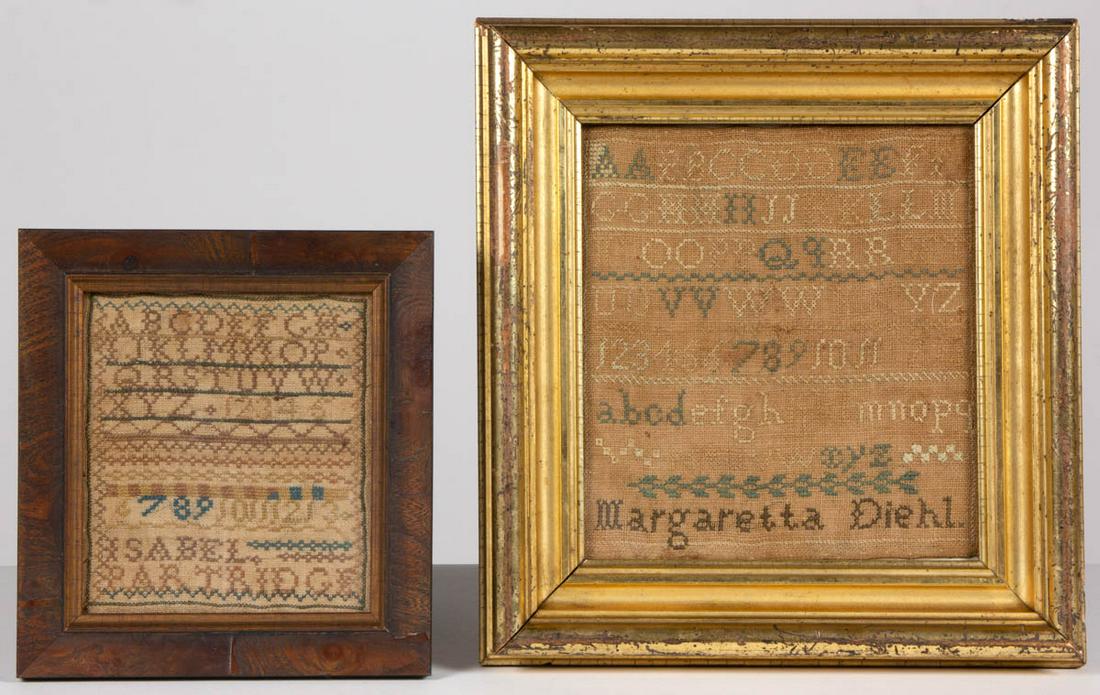 ABCDEFGH
IJKLMNOP
QRSTUVW
XYZ 1234
789 10 11 12 13
ISABEL
PARTRIDGE
AA BB CC DD EE F
GG HH JJ K LL M
OO PP Qq RR
UU VV WW YZ
123456789 10 11
abcdefgh mnopq
w xyz
Margaretta Diehl.